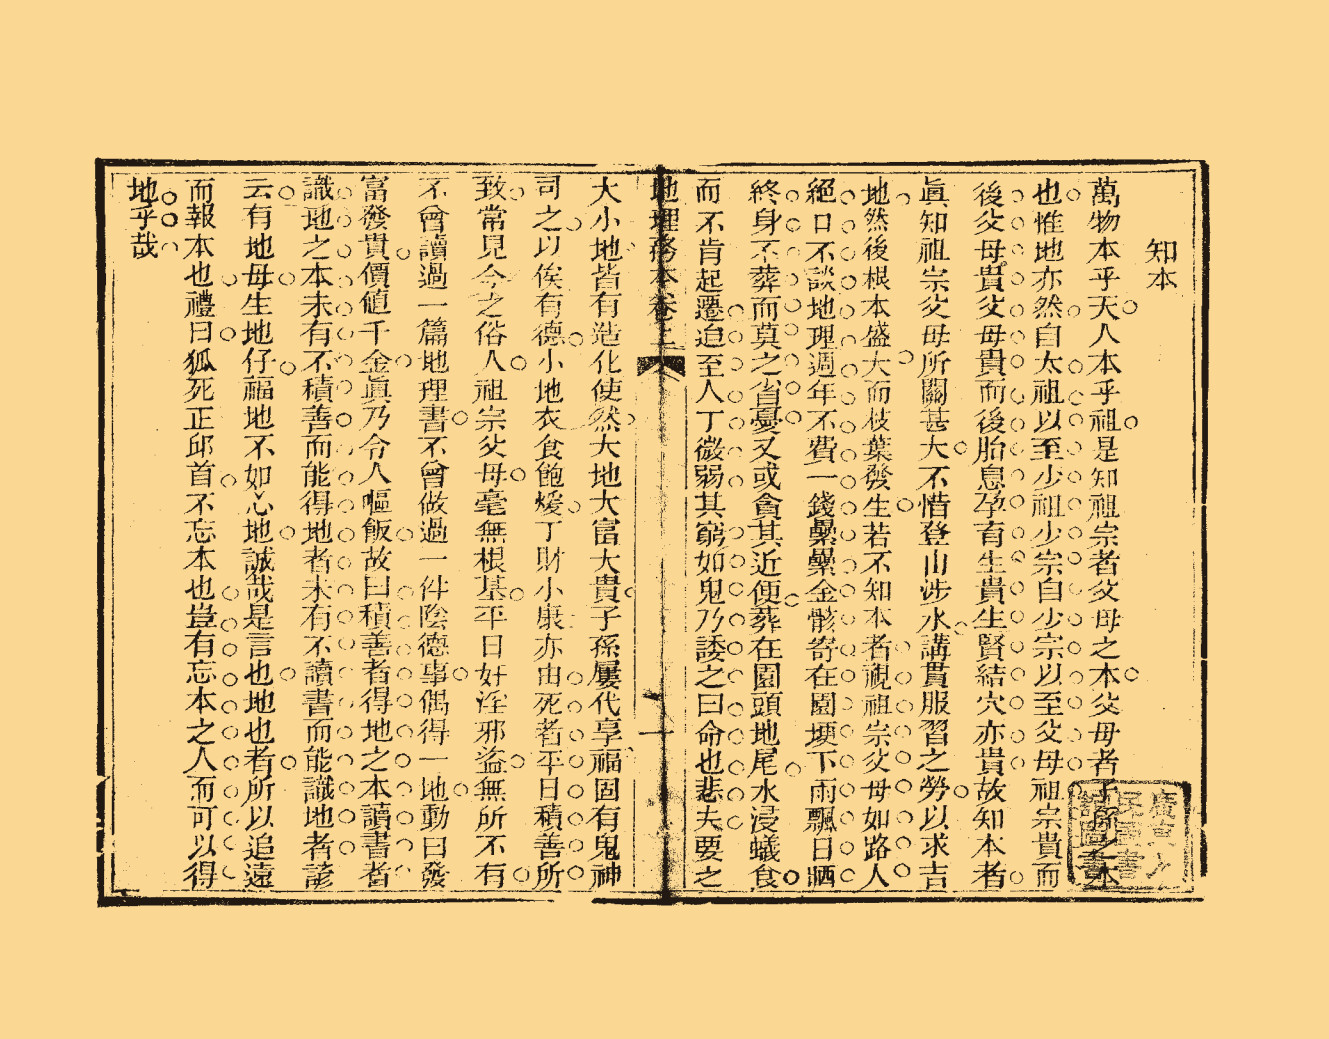 知本
萬物本乎天人本乎祖是知祖宗者父母之本父母者子孫之本
也惟地亦然自太祖以至少祖少宗自少宗以至父母祖宗貴而
後父母貴父母貴而後胎息孕育生貴生賢結穴亦貴故知本者
眞知祖宗父母所關甚大不惜登山涉水講貫服習之勞以求吉
地然後根本盛大而枝葉發生若不知本者視祖宗父母如路人
絕口不談地理週年不費一錢纍纍金骸寄在園埂下雨飄日晒
終身不葬而莫之省憂又或貪其近便葬在園頭地尾水浸蟻食
而不肯起遷迫至人丁微弱其窮如鬼乃諉之曰命也悲夫要之
地理務本卷上
一
大小地皆有造化使然大地大富大貴子孫屢代享福固有鬼神
司之以俟有德小地衣食飽煖丁財小康亦由死者平日積善所
致常見今之俗人祖宗父母毫無根基平日好淫邪盜無所不有
不會讀過一篇地理書不會做過一件陰德事偶得一地動曰發
富發貴價值千金眞乃令人嘔飯故曰積善者得地之本讀書者
識地之本未有不積善而能得地者未有不讀書而能識地者諺
云有地母生地仔福地不如心地誠哉是言也地也者所以追遠
而報本也禮曰狐死正邱首不忘本也豈有忘本之人而可以得
地乎哉